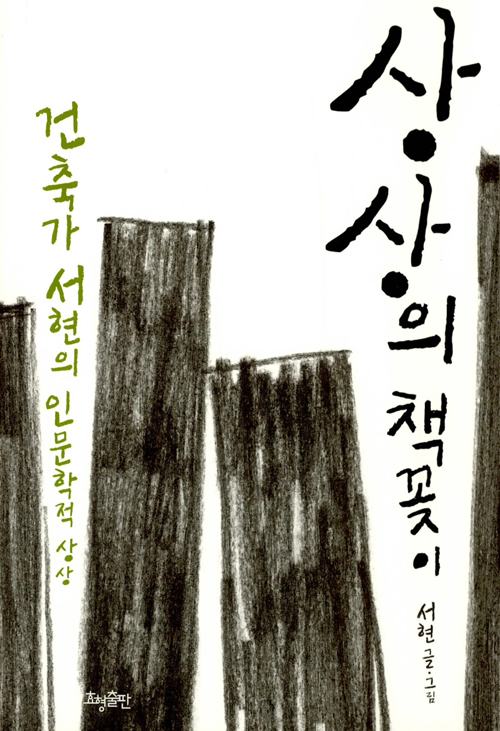 상상의 책꽂이
건축가 서현의 인문학적 상상
서현 글·그림
효형출판